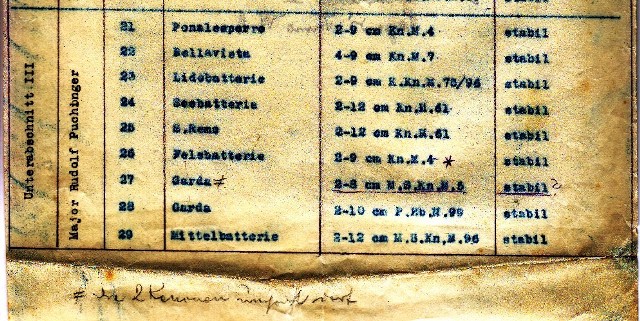 Unterabschnitt III
Major Rudolf Puchinger
21 Ponalesperre 2-9 cm Kn.M.4 stabil
22 Bellavista 4-9 cm Kn.M.7 stabil
23 Lidobatterie 2-9 cm K.Kn.M.75/96 stabil
24 Seebatterie 2-12 cm Kn.M.61 stabil
25 S.Rems 2-12 cm Kn.M.61 stabil
26 Felsbatterie 2-9 cm Kn.M.4 * stabil
27 Garda ≠ 2-8 cm M.S.Kn.M.2 stabil ?
28 Garda 2-10 cm P.Hb.M.99 stabil
29 Mittelbatterie 2-12 cm M.S.Kn.M.96 stabil
2 Kanonen